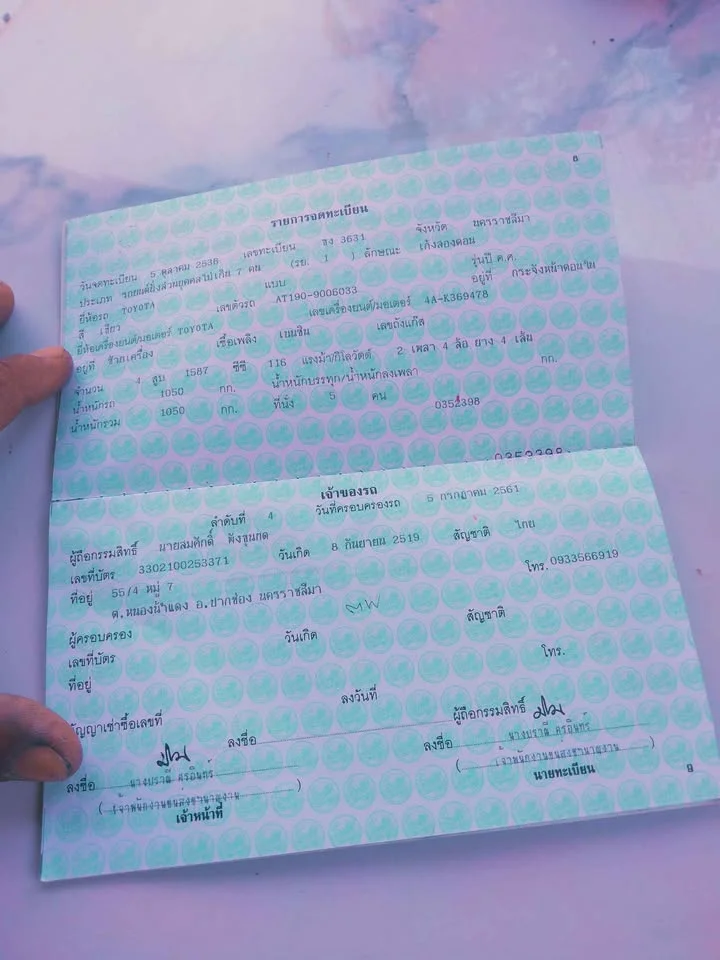 8
รายการจดทะเบียน
วันจดทะเบียน 5 ตุลาคม 2538 เลขทะเบียน 3631 จังหวัด นครราชสีมา
ประเภท รถยนต์นั่งส่วนบุคคลไม่เกิน 7 คน (รย. 1 ) ลักษณะ เก๋งสองตอน
ยี่ห้อรถ TOYOTA แบบ รุ่นปี ค.ศ.
สี เขียว เลขตัวรถ AT190-9006033 อยู่ที่ กระจังหน้าตอนใน
ยี่ห้อเครื่องยนต์/มอเตอร์ TOYOTA เลขเครื่องยนต์/มอเตอร์ 4A-K369478
อยู่ที่ ซ้ายเครื่อง เชื้อเพลิง เบนซิน เลขถังแก๊ส
จำนวน 4 สูบ 1587 ซีซี 116 แรงม้า/กิโลวัตต์ 2 เพลา 4 ล้อ ยาง 4 เส้น
น้ำหนักรถ 1050 กก. น้ำหนักบรรทุก/น้ำหนักลงเพลา กก.
น้ำหนักรวม 1050 กก. ที่นั่ง 5 คน 0352398
0352398
เจ้าของรถ
ลำดับที่ 4 วันที่ครอบครองรถ 5 กรกฎาคม 2561
ผู้ถือกรรมสิทธิ์ นายสมศักดิ์
เลขที่บัตร 3302100253371 วันเกิด 8 กันยายน 2519 สัญชาติ ไทย
ที่อยู่ 55/4 หมู่ 7 โทร. 0933566919
ต.หนองน้ำแดง อ.ปากช่อง นครราชสีมา
ผู้ครอบครอง
เลขที่บัตร วันเกิด สัญชาติ
ที่อยู่ โทร.
สัญญาเช่าซื้อเลขที่ ลงวันที่
ลงชื่อ ผู้ถือกรรมสิทธิ์
ลงชื่อ นางปราณี ศุรอินทร์ ลงชื่อ นางปราณี ศุรอินทร์
( เจ้าพนักงานขนส่งชำนาญงาน ) ( เจ้าพนักงานขนส่งชำนาญงาน )
เจ้าหน้าที่ นายทะเบียน
9